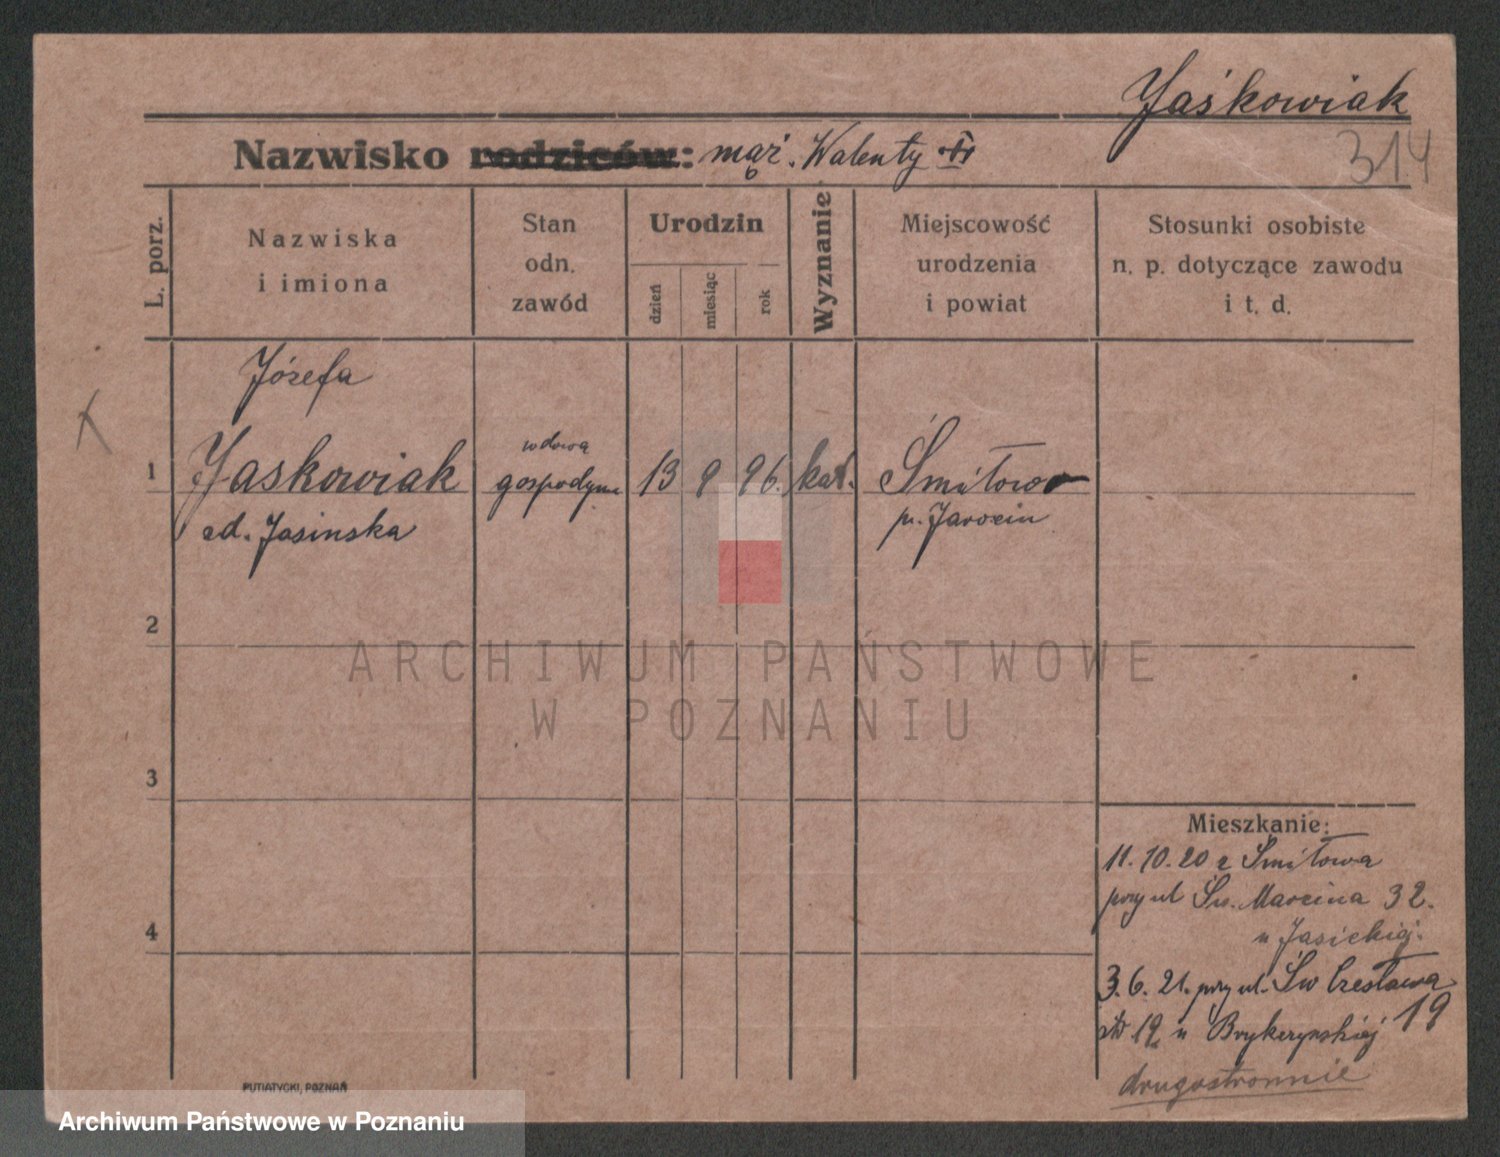 Jaśkowiak
314
Nazwisko rodziców: mąż. Walenty
L. porz.
Nazwiska
i imiona
Stan
odn.
zawód
Urodzin
dzień
miesiąc
rok
Wyznanie
Miejscowość
urodzenia
i powiat
Stosunki osobiste
n. p. dotyczące zawodu
i t. d.
Józefa
1 Jaskowiak
zd. Jasinska
wdowa
gospodyni
13 9 96. kat.
Śmiłowo
p. Jarocin
2
3
4
ARCHIWUM PAŃSTWOWE
W POZNANIU
Mieszkanie:
11. 10. 20 z Śmiłowa
przy ul Św. Marcina 32.
u Jasickiej.
3. 6. 21. przy ul. Św Czesława
19 u 19
drugostronnie
PUTIATYCKI, POZNAŃ
Archiwum Państwowe w Poznaniu